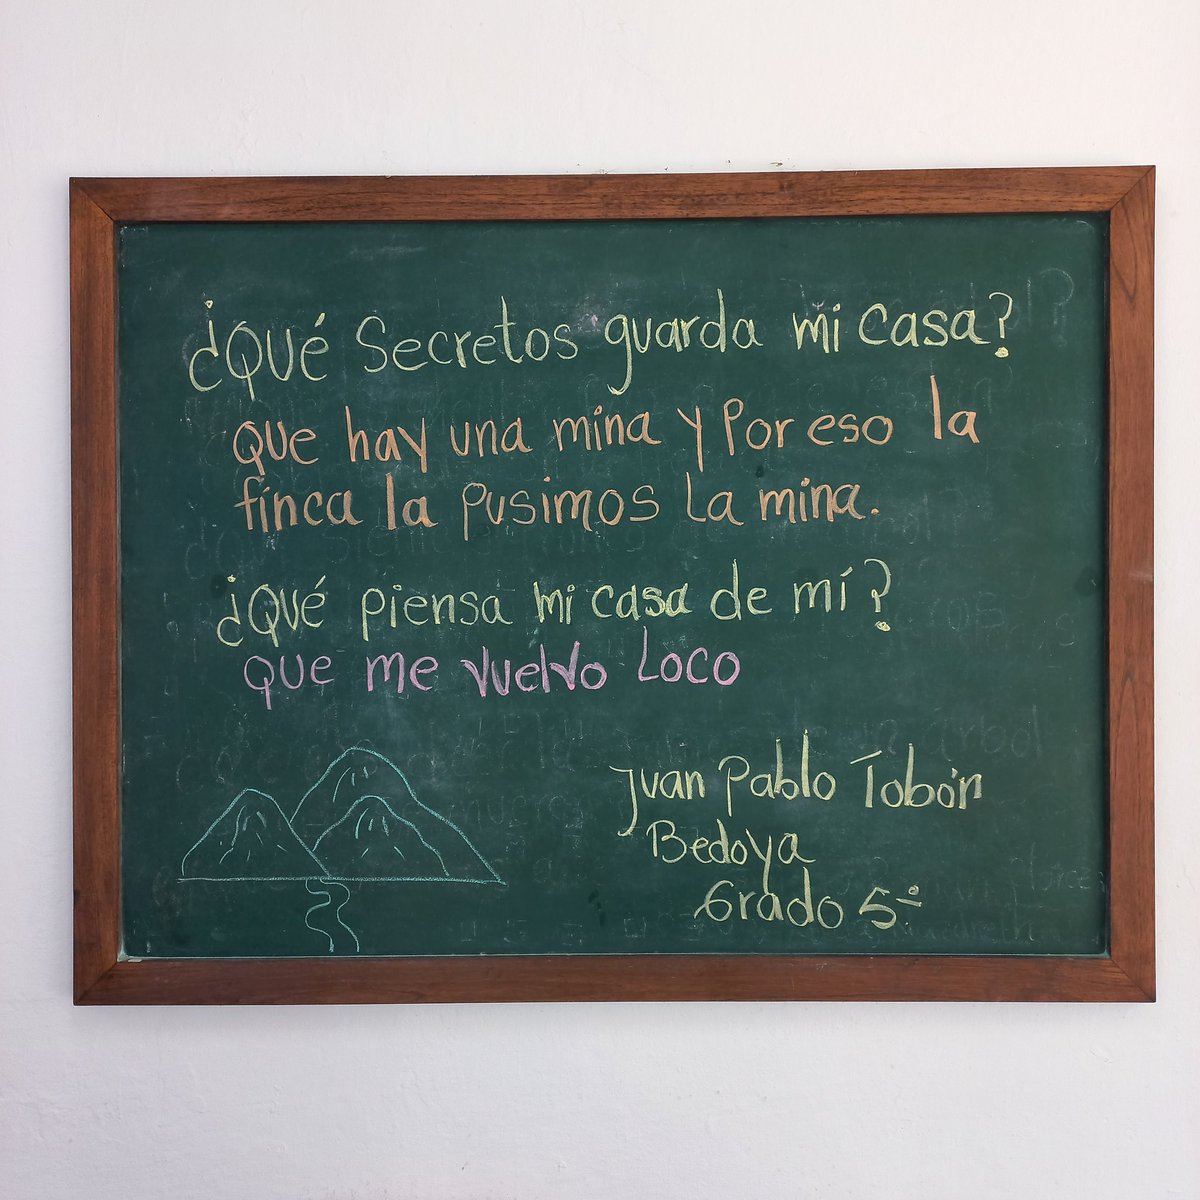 ¿QUé Secretos guarda mi casa?
QUe hay una mina y Por eso la
finca la pusimos La mina.
¿QVé piensa mi casa de mí?
QUe me vuelvo Loco
Juan Pablo Tobón
Bedoya
Grado 5º